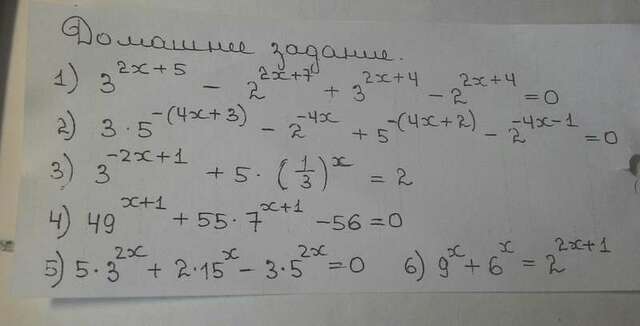 Домашнее задание.
1) 3^{2x+5} - 2^{2x+7} + 3^{2x+4} - 2^{2x+4} = 0
2) 3·5^{-(4x+3)} - 2^{-4x} + 5^{-(4x+2)} - 2^{-4x-1} = 0
3) 3^{-2x+1} + 5·(1/3)^x = 2
4) 49^{x+1} + 55·7^{x+1} - 56 = 0
5) 5·3^{2x} + 2·15^x - 3·5^{2x} = 0 6) 9^x + 6^x = 2^{2x+1}